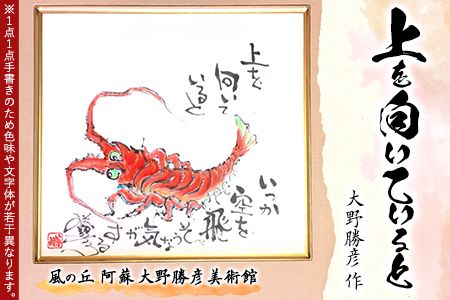 ※1点1点手書きのため色味や文字体が若干異なります。
上を向いていると
大野勝彦 作
上を
向いて
いると
いつか
空を
飛
べそうな
気が
する
風の丘 阿蘇 大野勝彦 美術館